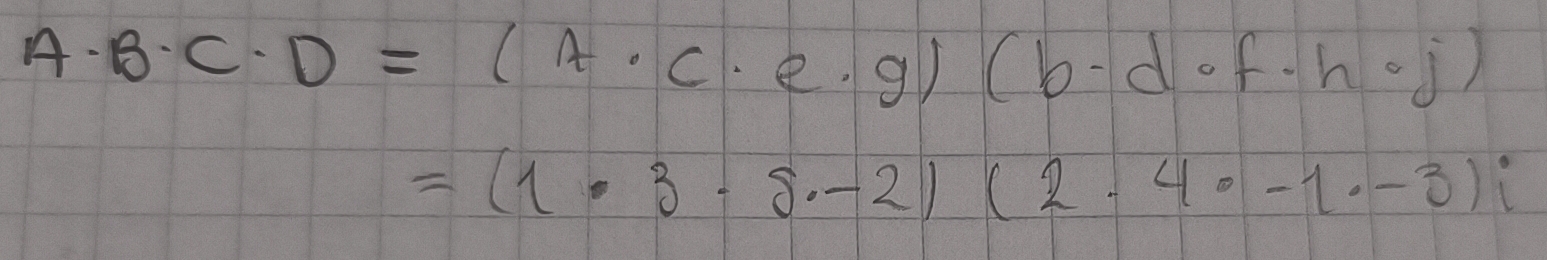 A·B·C·D = (A·c·e·g)(b·d·f·h·j)
= (1·3·5·-2)(2·4·-1·-3)i